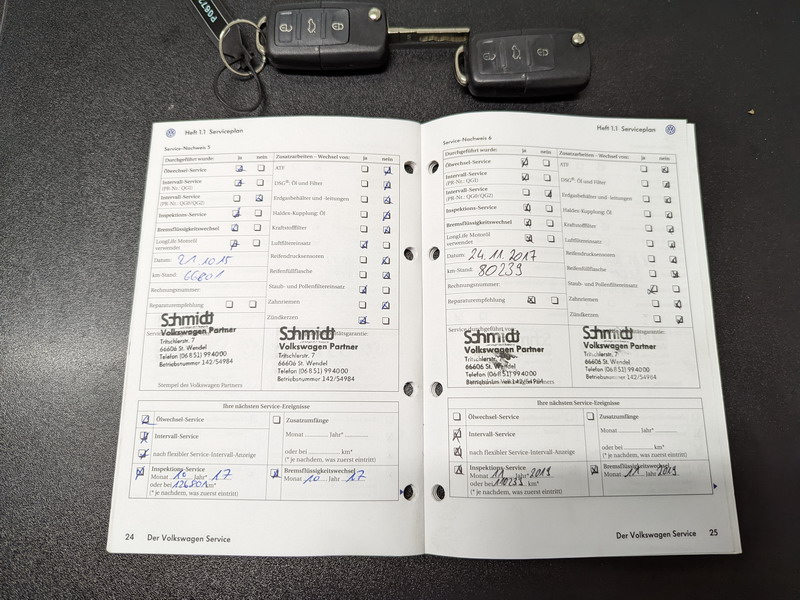 P0672
Heft 1.1 Serviceplan
Service-Nachweis 5
Durchgeführt wurde: ja nein
Ölwechsel-Service
Intervall-Service
(PR-Nr.: QG1)
Intervall-Service
(PR-Nr.: QG0/QG2)
Inspektions-Service
Bremsflüssigkeitswechsel
LongLife Motoröl
verwendet
Datum: 21.10.15
km-Stand: 66801
Rechnungsnummer:
Reparaturempfehlung
Zusatzarbeiten - Wechsel von: ja nein
ATF
DSG®-Öl und Filter
Erdgasbehälter und -leitungen
Haldex-Kupplung: Öl
Kraftstofffilter
Luftfiltereinsatz
Reifendrucksensoren
Reifenfüllflasche
Staub- und Pollenfiltereinsatz
Zahnriemen
Zündkerzen
Schmidt
Volkswagen Partner
Tritschlerstr. 7
66606 St. Wendel
Telefon (06851) 99 40 00
Betriebsnummer 142/54984
Stempel des Volkswagen Partners
Schmidt
Mobilitätsgarantie:
Volkswagen Partner
Tritschlerstr. 7
66606 St. Wendel
Telefon (06851) 99 40 00
Betriebsnummer 142/54984
Ihre nächsten Service-Ereignisse
Ölwechsel-Service
Intervall-Service
nach flexibler Service-Intervall-Anzeige
Inspektions-Service
Monat 10 Jahr* 17
oder bei 126801 km*
(* je nachdem, was zuerst eintritt)
Zusatzumfänge
Monat Jahr*
oder bei km*
(* je nachdem, was zuerst eintritt)
Bremsflüssigkeitswechsel
Monat 10 Jahr 17
24 Der Volkswagen Service
Heft 1.1 Serviceplan
Service-Nachweis 6
Durchgeführt wurde: ja nein
Ölwechsel-Service
Intervall-Service
(PR-Nr.: QG1)
Intervall-Service
(PR-Nr.: QG0/QG2)
Inspektions-Service
Bremsflüssigkeitswechsel
LongLife Motoröl
verwendet
Datum: 24.11.2017
km-Stand: 80239
Rechnungsnummer:
Reparaturempfehlung
Zusatzarbeiten - Wechsel von: ja nein
ATF
DSG®-Öl und Filter
Erdgasbehälter und -leitungen
Haldex-Kupplung: Öl
Kraftstofffilter
Luftfiltereinsatz
Reifendrucksensoren
Reifenfüllflasche
Staub- und Pollenfiltereinsatz
Zahnriemen
Zündkerzen
Service durchgeführt von:
Schmidt
Volkswagen Partner
Tritschlerstr. 7
66606 St. Wendel
Telefon (06851) 99 40 00
Betriebsnummer 142/54984
Schmidt
Mobilitätsgarantie:
Volkswagen Partner
Tritschlerstr. 7
66606 St. Wendel
Telefon (06851) 99 40 00
Betriebsnummer 142/54984
Ihre nächsten Service-Ereignisse
Ölwechsel-Service
Intervall-Service
nach flexibler Service-Intervall-Anzeige
Inspektions-Service
Monat 11 Jahr* 2019
oder bei 110239 km*
(* je nachdem, was zuerst eintritt)
Zusatzumfänge
Monat Jahr*
oder bei km*
(* je nachdem, was zuerst eintritt)
Bremsflüssigkeitswechsel
Monat 11 Jahr 2019
Der Volkswagen Service 25